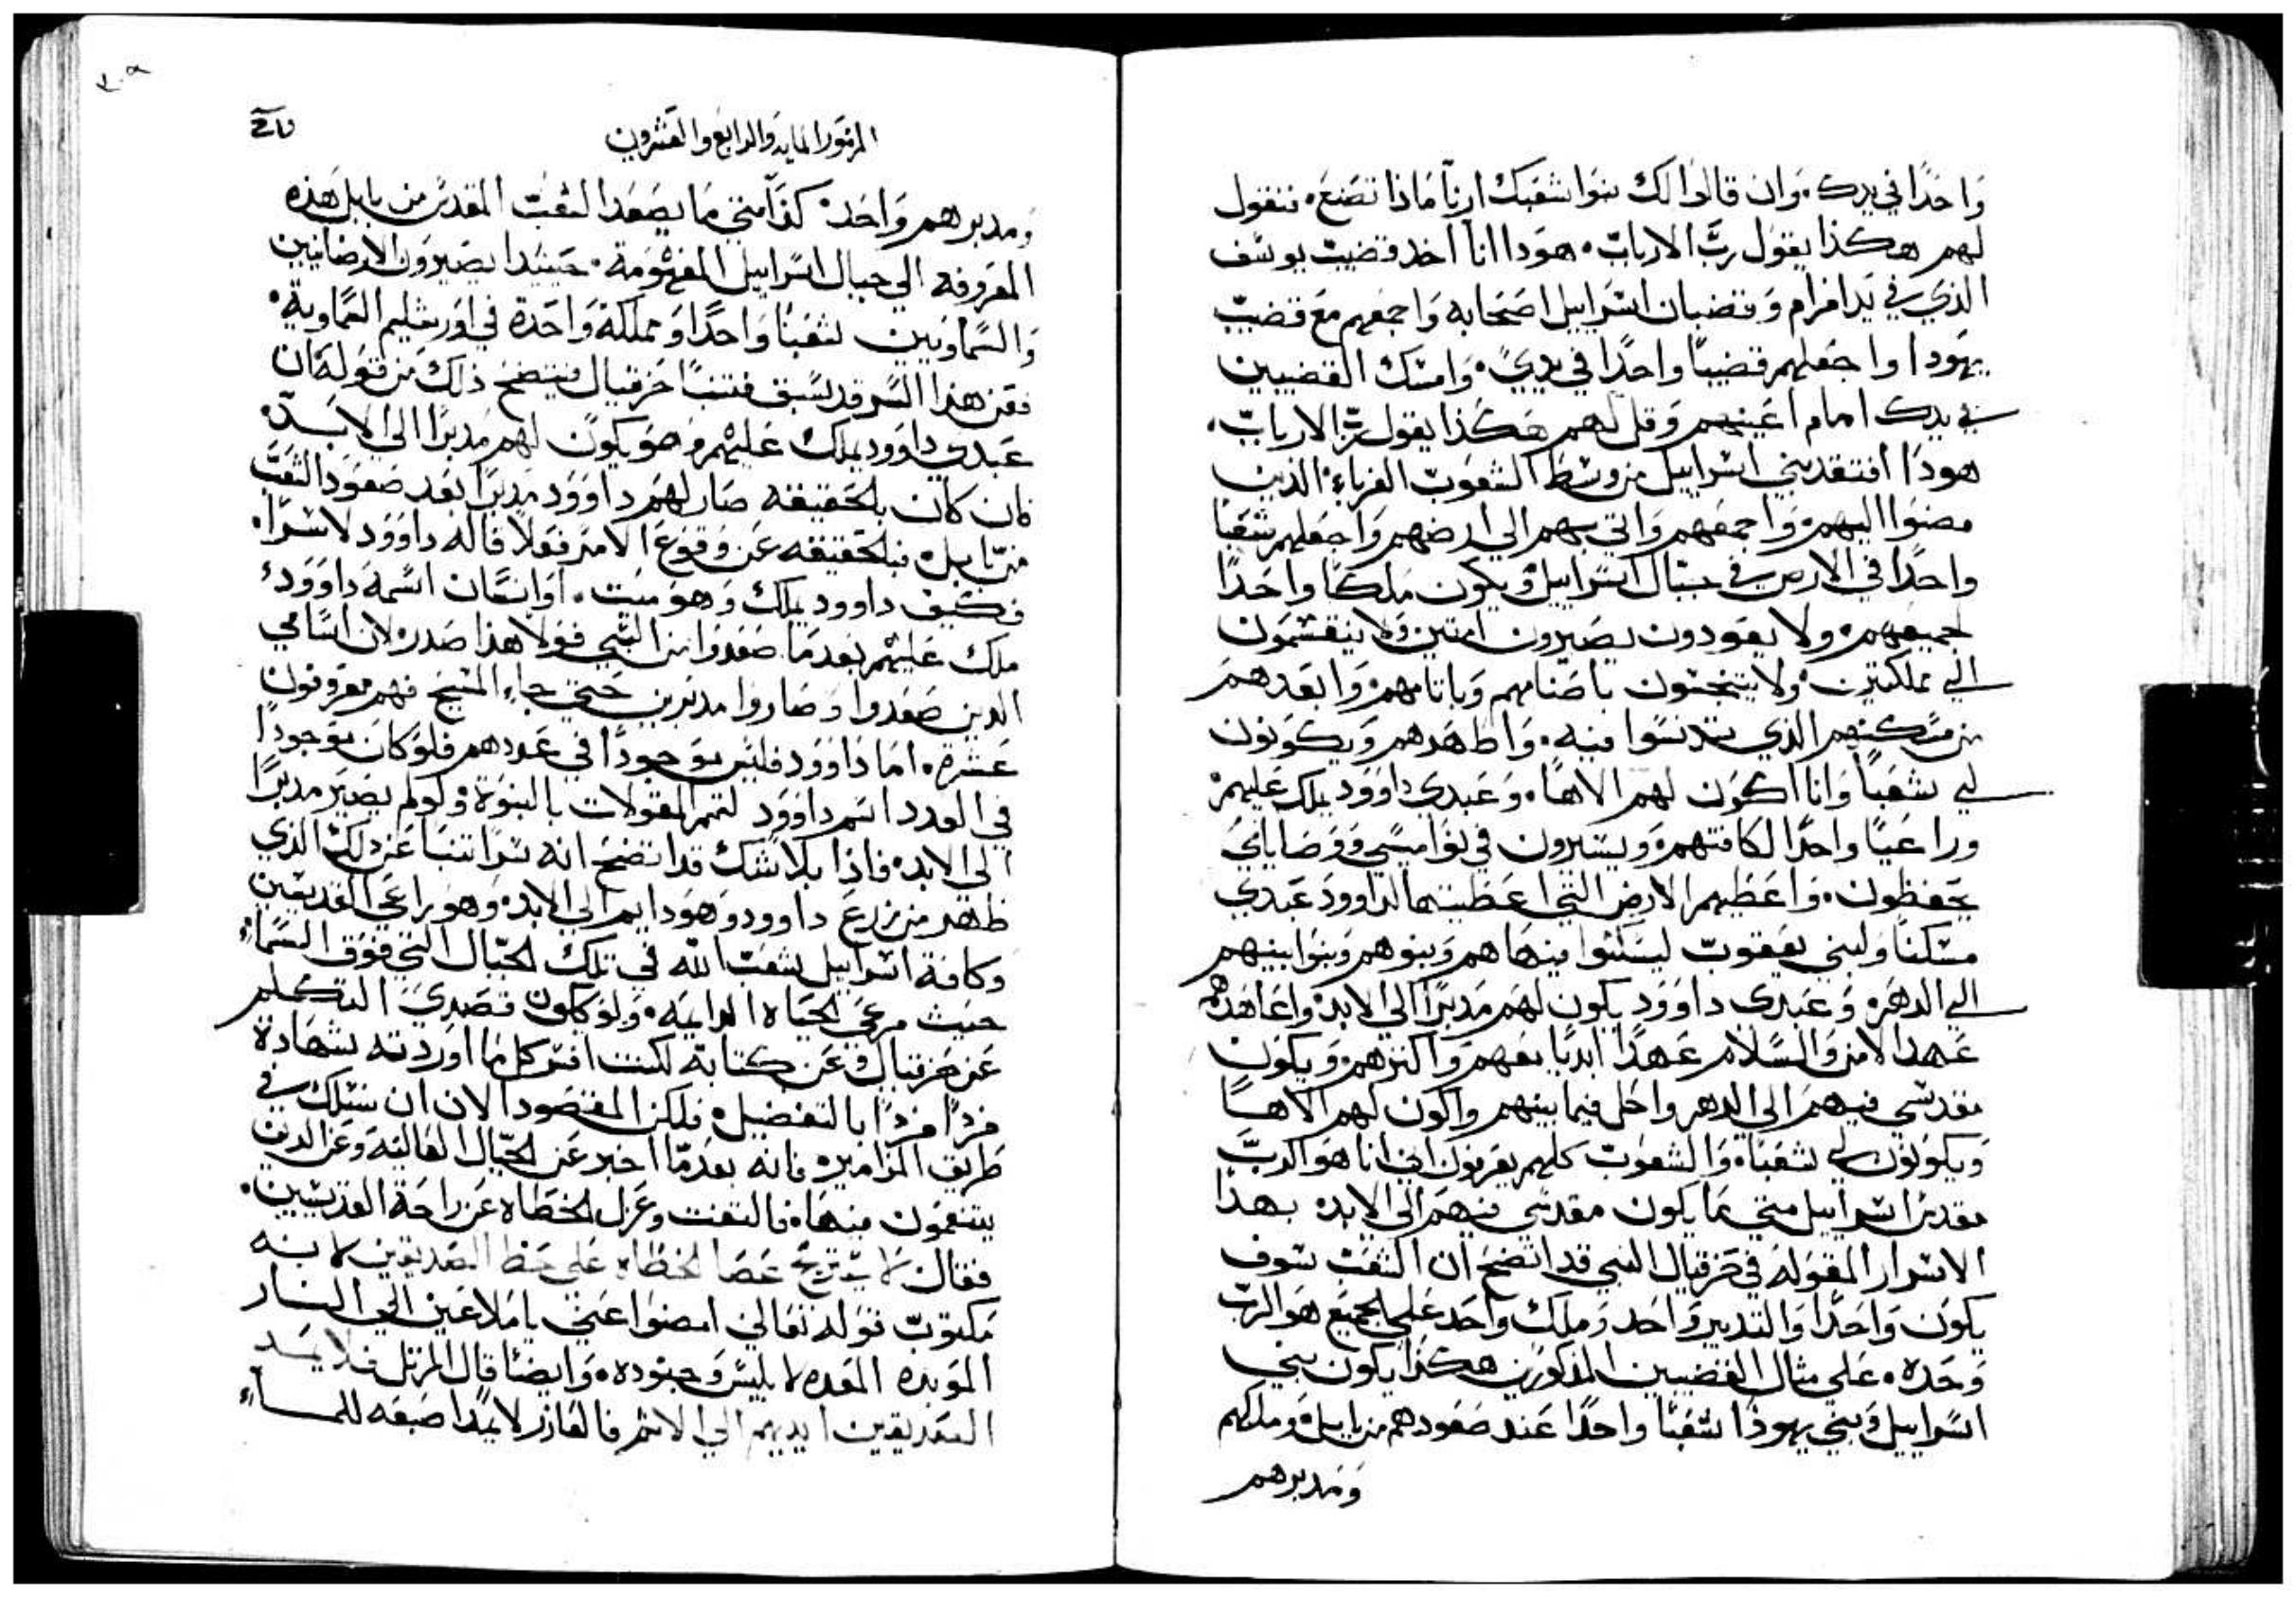 واحدًا في يدك. وان قالوا لك بنوا شعبك ارنا ماذا تصنع. فتقول
لهم هكذا يقول ربّ الارباب. هودا انا اخد قضيب يوسف
الذي في يد افرام وقضبان اسراييل اصحابه واجمعهم مع قضيب
يهودا واجعلهم قضيبًا واحدًا في يدي. وامسك القضيبين
في يدك امام اعينهم وقل لهم هكذا يقول ربّ الارباب.
هودا افتقد بني اسراييل من وسط الشعوب الغرباء الذين
مضوا اليهم واجمعهم واتي بهم الي ارضهم واجعلهم شعبًا
واحدًا في الارض في جبال اسراييل ويكون ملكًا واحدًا
لجميعهم. ولا يعودون يصيرون امتين ولا ينقسمون
الي مملكتين. ولا يتنجسون باصنامهم وباثامهم. وابعدهم
من مسكنهم الذي تدنسوا فيه. واطهدهم ويكونون
لي شعبًا وانا اكون لهم الاهًا. وعبدي داوود يملك عليهم
وراعيًا واحدًا لكافتهم ويسيرون في نواميسي ووصاياي
يحفظون. واعطيهم الارض التي اعطيتها لداوود عبدي
مسكنًا ولبني يعقوب ليسكنوا فيها هم وبنوهم وبنوا بنيهم
الي الدهر. وعبدي داوود يكون لهم مدبرًا الي الابد واعاهدهم
عهد الامن والسلام عهدًا ابديًا معهم واكثرهم ويكون
مقدسي فيهم الي الدهر واحل فيما بينهم واكون لهم الاهًا
ويكونون لي شعبًا. والشعوب كلهم يعرفون اني انا هو الربّ
مقدس اسراييل متي ما يكون مقدسي فيهم الي الابد. بهذا
الاسرار المقوله في حزقيال النبي قد اتضح ان الشعب سوف
يكون واحدًا والتدبير واحد وملك واحد علي الجميع هو الربّ
وحده. علي مثال القضيبين المذكورين هكذا يكون بني
اسراييل وبني يهوذا شعبًا واحدًا عند صعودهم من بابيل وملكهم
ومدبرهم
المزمور المايه والرابع والعشرون
ومدبرهم واحد. كذا متي ما يصعد الشعب المقدس من بابل هذه
المعروفه الي جبال اسراييل المفهومة. حينيدا يصيرون الارضانيين
والسماويين شعبًا واحدًا ومملكة واحدة في اورشليم السماوية.
فعن هذا السر قد سبق فتنبا حزقيال فيتضح ذلك من قوله ان
عبدي داوود يملك عليهم وهو يكون لهم مدبرًا الي الابد.
فان كان بالحقيقه صار لهم داوود مدبرًا بعد صعود الشعب
من بابل فبالحقيقه عن وقوع الامر فعلًا قاله داوود لا سرًا.
فكيف داوود يملك وهو ميت. او انسان اسمه داوود
ملك عليهم بعدما صعدوا من السبي فولا هذا صدر لان اسامي
الدين صعدوا وصاروا مدبرين حتي جاء المسيح فهم معروفون
عشرة. اما داوود فليس موجودًا في عددهم فلو كان موجودًا
في العدد اسم داوود لتتم المقولات بالنبوة. ولو لم يصير مدبرًا
الي الابد. فاذا بلا شك قد اتضح انه سرًا تنبا عن ذلك الذي
ظهر من زرع داوود وهو دايم الي الابد. وهو راعي القديسين
وكافة اسراييل شعب الله في تلك الجبال التي فوق السماء
حيث مرعي الحياه الدايمه. ولو كان قصدي التكلم
عن حزقيال وعن كتابه لكنت افسر كل ما اوردته شهادة
فردًا فردًا بالتفصيل. فلكن المقصود الان ان نسلك في
طريق المزامير. فانه بعدما اخبر عن الجبال العاليه وعن الدين
يتنعمون فيها. فالتفت وعزل الخطاه عن راحة القديسين.
فقال لا يستريح عصا الخطاه علي حظ الصديقين لانه
مكتوب قوله تعالي امضوا عني يا ملاعين الي النار
الموبده المعده لابليس وجنوده. وايضا قال المرتل فلا يمد
الصديقين ايديهم الي الاثم فالعازر لا يمد اصبعه للمساء